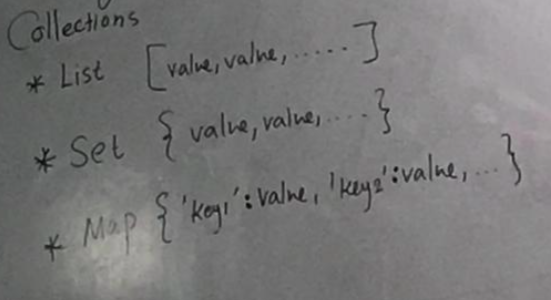 Collections
* List [value, value, .....]
* Set { value, value, .... }
* Map { 'key1': value, 'key2': value, ... }